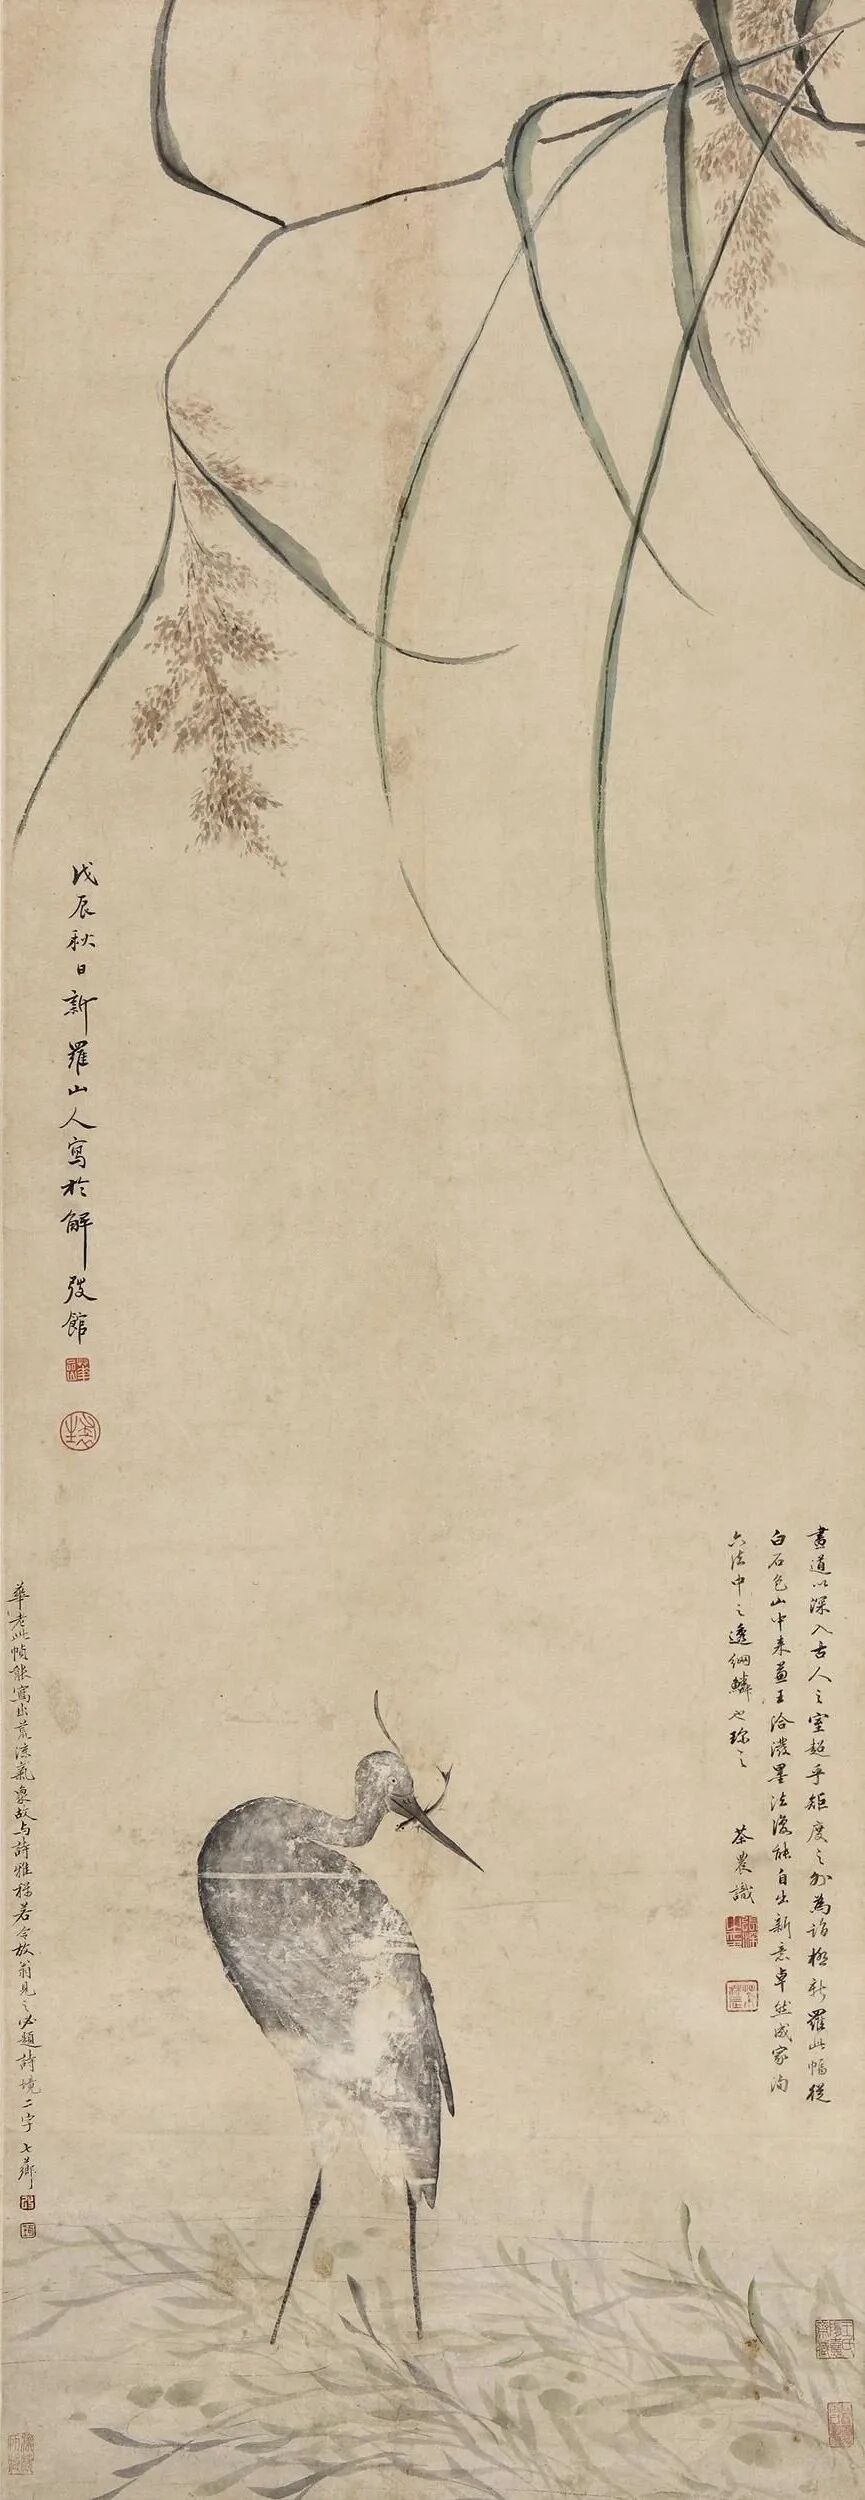 畫道以深入古人之室超乎矩度之外為詣極新羅此幅從
白石色山中來蓋王洽潑墨法復能自出新意卓然成家洵
六法中之透網鱗也珍之
茶農識
戊辰秋日新羅山人寫於解弢館
華老此幀能寫出荒涼氣象故與詩雅稱若令放翁見之必題詩境二字 七薌